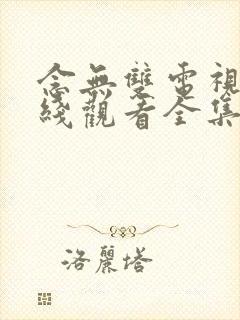 念無雙電視
綫觀看全集
洛麗塔